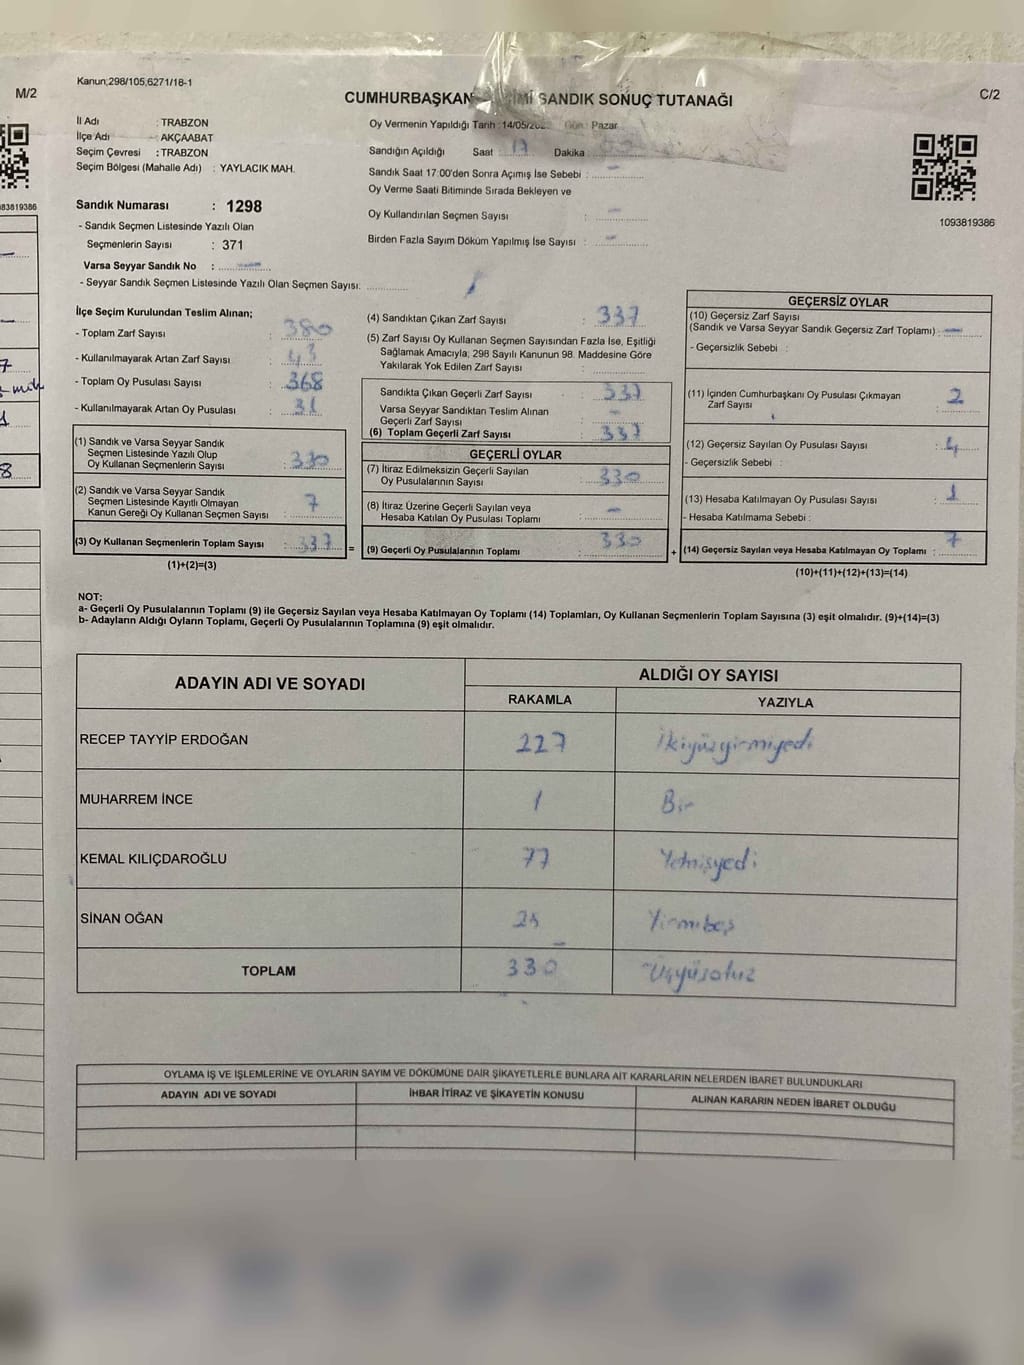 Kanun;298/105,6271/18-1
M/2
C/2
CUMHURBAŞKAN SANDIK SONUÇ TUTANAĞI
İl Adı : TRABZON
İlçe Adı : AKÇAABAT
Seçim Çevresi : TRABZON
Seçim Bölgesi (Mahalle Adı) : YAYLACIK MAH.
Sandık Numarası : 1298
- Sandık Seçmen Listesinde Yazılı Olan
Seçmenlerin Sayısı : 371
Varsa Seyyar Sandık No : —
- Seyyar Sandık Seçmen Listesinde Yazılı Olan Seçmen Sayısı:
Oy Vermenin Yapıldığı Tarih : 14/05/202 Gün : Pazar
Sandığın Açıldığı Saat : 17 Dakika :
Sandık Saat 17:00'den Sonra Açımış İse Sebebi : —
Oy Verme Saati Bitiminde Sırada Bekleyen ve
Oy Kullandırılan Seçmen Sayısı : —
Birden Fazla Sayım Döküm Yapılmış İse Sayısı : —
1093819386
83819386
İlçe Seçim Kurulundan Teslim Alınan;
- Toplam Zarf Sayısı : 380
- Kullanılmayarak Artan Zarf Sayısı : 43
- Toplam Oy Pusulası Sayısı : 368
- Kullanılmayarak Artan Oy Pusulası : 31
(1) Sandık ve Varsa Seyyar Sandık
Seçmen Listesinde Yazılı Olup
Oy Kullanan Seçmenlerin Sayısı : 330
(2) Sandık ve Varsa Seyyar Sandık
Seçmen Listesinde Kayıtlı Olmayan
Kanun Gereği Oy Kullanan Seçmen Sayısı : 7
(3) Oy Kullanan Seçmenlerin Toplam Sayısı : 337 =
(1)+(2)=(3)
(4) Sandıktan Çıkan Zarf Sayısı : 337
(5) Zarf Sayısı Oy Kullanan Seçmen Sayısından Fazla İse, Eşitliği
Sağlamak Amacıyla; 298 Sayılı Kanunun 98. Maddesine Göre
Yakılarak Yok Edilen Zarf Sayısı :
Sandıkta Çıkan Geçerli Zarf Sayısı : 337
Varsa Seyyar Sandıktan Teslim Alınan
Geçerli Zarf Sayısı : —
(6) Toplam Geçerli Zarf Sayısı : 337
GEÇERLİ OYLAR
(7) İtiraz Edilmeksizin Geçerli Sayılan
Oy Pusulalarının Sayısı : 330
(8) İtiraz Üzerine Geçerli Sayılan veya
Hesaba Katılan Oy Pusulası Toplamı : —
(9) Geçerli Oy Pusulalarının Toplamı : 330 +
GEÇERSİZ OYLAR
(10) Geçersiz Zarf Sayısı
(Sandık ve Varsa Seyyar Sandık Geçersiz Zarf Toplamı) : —
- Geçersizlik Sebebi :
(11) İçinden Cumhurbaşkanı Oy Pusulası Çıkmayan
Zarf Sayısı : 2
(12) Geçersiz Sayılan Oy Pusulası Sayısı : 4
- Geçersizlik Sebebi :
(13) Hesaba Katılmayan Oy Pusulası Sayısı : 1
- Hesaba Katılmama Sebebi :
(14) Geçersiz Sayılan veya Hesaba Katılmayan Oy Toplamı : 7
(10)+(11)+(12)+(13)=(14)
NOT:
a- Geçerli Oy Pusulalarının Toplamı (9) ile Geçersiz Sayılan veya Hesaba Katılmayan Oy Toplamı (14) Toplamları, Oy Kullanan Seçmenlerin Toplam Sayısına (3) eşit olmalıdır. (9)+(14)=(3)
b- Adayların Aldığı Oyların Toplamı, Geçerli Oy Pusulalarının Toplamına (9) eşit olmalıdır.
ADAYIN ADI VE SOYADI
ALDIĞI OY SAYISI
RAKAMLA YAZIYLA
RECEP TAYYİP ERDOĞAN 227 İkiyüzyirmiyedi
MUHARREM İNCE 1 Bir
KEMAL KILIÇDAROĞLU 77 Yetmişyedi
SİNAN OĞAN 25 Yirmibeş
TOPLAM 330 Üçyüzotuz
OYLAMA İŞ VE İŞLEMLERİNE VE OYLARIN SAYIM VE DÖKÜMÜNE DAİR ŞİKAYETLERLE BUNLARA AİT KARARLARIN NELERDEN İBARET BULUNDUKLARI
ADAYIN ADI VE SOYADI İHBAR İTİRAZ VE ŞİKAYETİN KONUSU ALINAN KARARIN NEDEN İBARET OLDUĞU